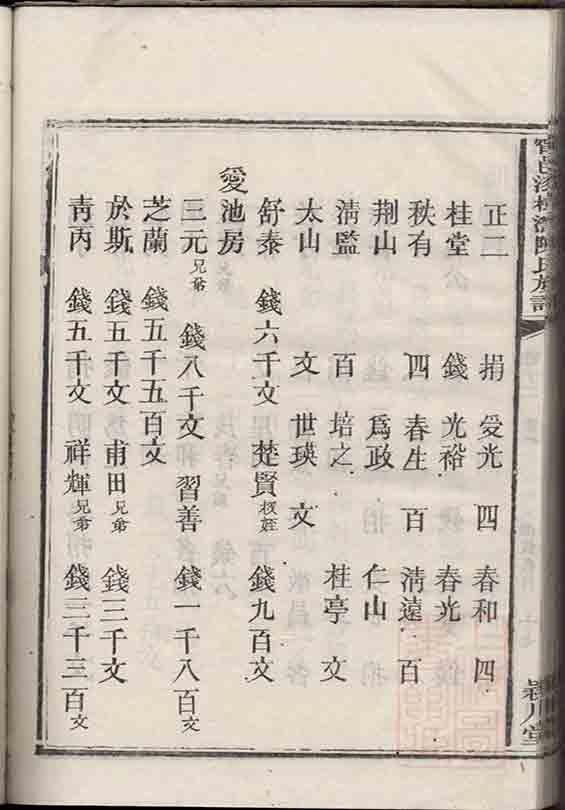 陳氏族譜
潁川堂
正二 捐 受光 四 春和 四
桂堂 錢 光裕 春光
秩有 四 春生 百 清遠 百
荆山 爲政 仁山
清監 百 培之 桂亭 文
太山 文 世瑛 文
舒泰 錢六千文 楚賢叔姪 錢九百文
愛池房
三元兄弟 錢八千文 習善 錢一千八百文
芝蘭 錢五千五百文
於斯 錢五千文 甫田兄弟 錢三千文
靑丙 錢五千文 祥輝兄弟 錢二千三百文